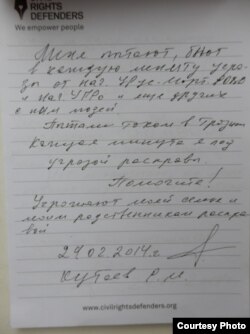 RIGHTS
DEFENDERS
We empower people
Меня пытают, бьют
в каждую минуту угро-
за от нач. Урус-Март. РОВД
и нач УФРО и еще других
с ним людей.
Пытали током в Грозном
каждая минута я под
угрозой расправы
Помогите!
Угрожают моей семье и
моим родственникам распра
вой
24.02.2014г.
Кутаев Р. М.
www.civilrightsdefenders.org
Courtesy Photo